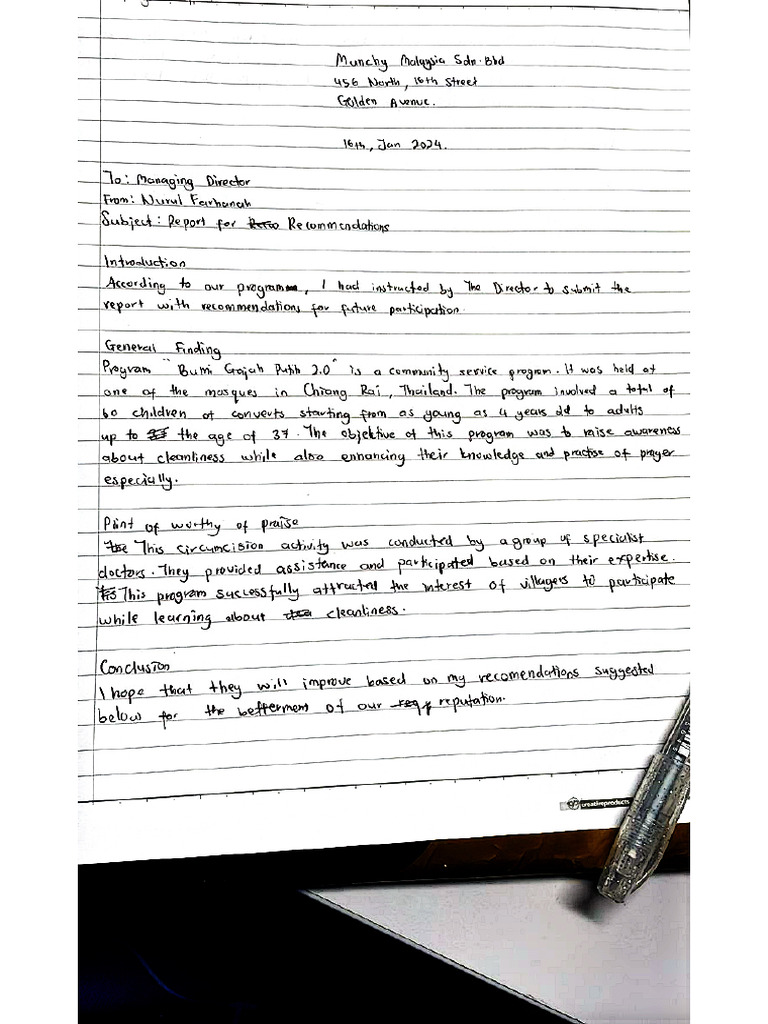 Munchy Malaysia Sdn. Bhd
456 North, 16th Street
Golden Avenue.
16th, Jan 2024.
To: Managing Director
From: Nurul Farhanah
Subject: Report for Recommendations
Introduction
According to our program, I had instructed by The Director to submit the
report with recommendations for future participation.
General Finding
Program "Bumi Gajah Putih 2.0" is a community service program. It was held at
one of the mosques in Chiang Rai, Thailand. The program involved a total of
60 children of converts starting from as young as 4 years old to adults
up to the age of 37. The objektive of this program was to raise awareness
about cleanliness while also enhancing their knowledge and practise of prayer
especially.
Point of worthy of praise
This circumcision activity was conducted by a group of specialist
doctors. They provided assistance and participated based on their expertise.
This program successfully attracted the interest of villagers to participate
while learning about cleanliness.
Conclusion
I hope that they will improve based on my recomendations suggested
below for the betterment of our reputation.
creativeproducts